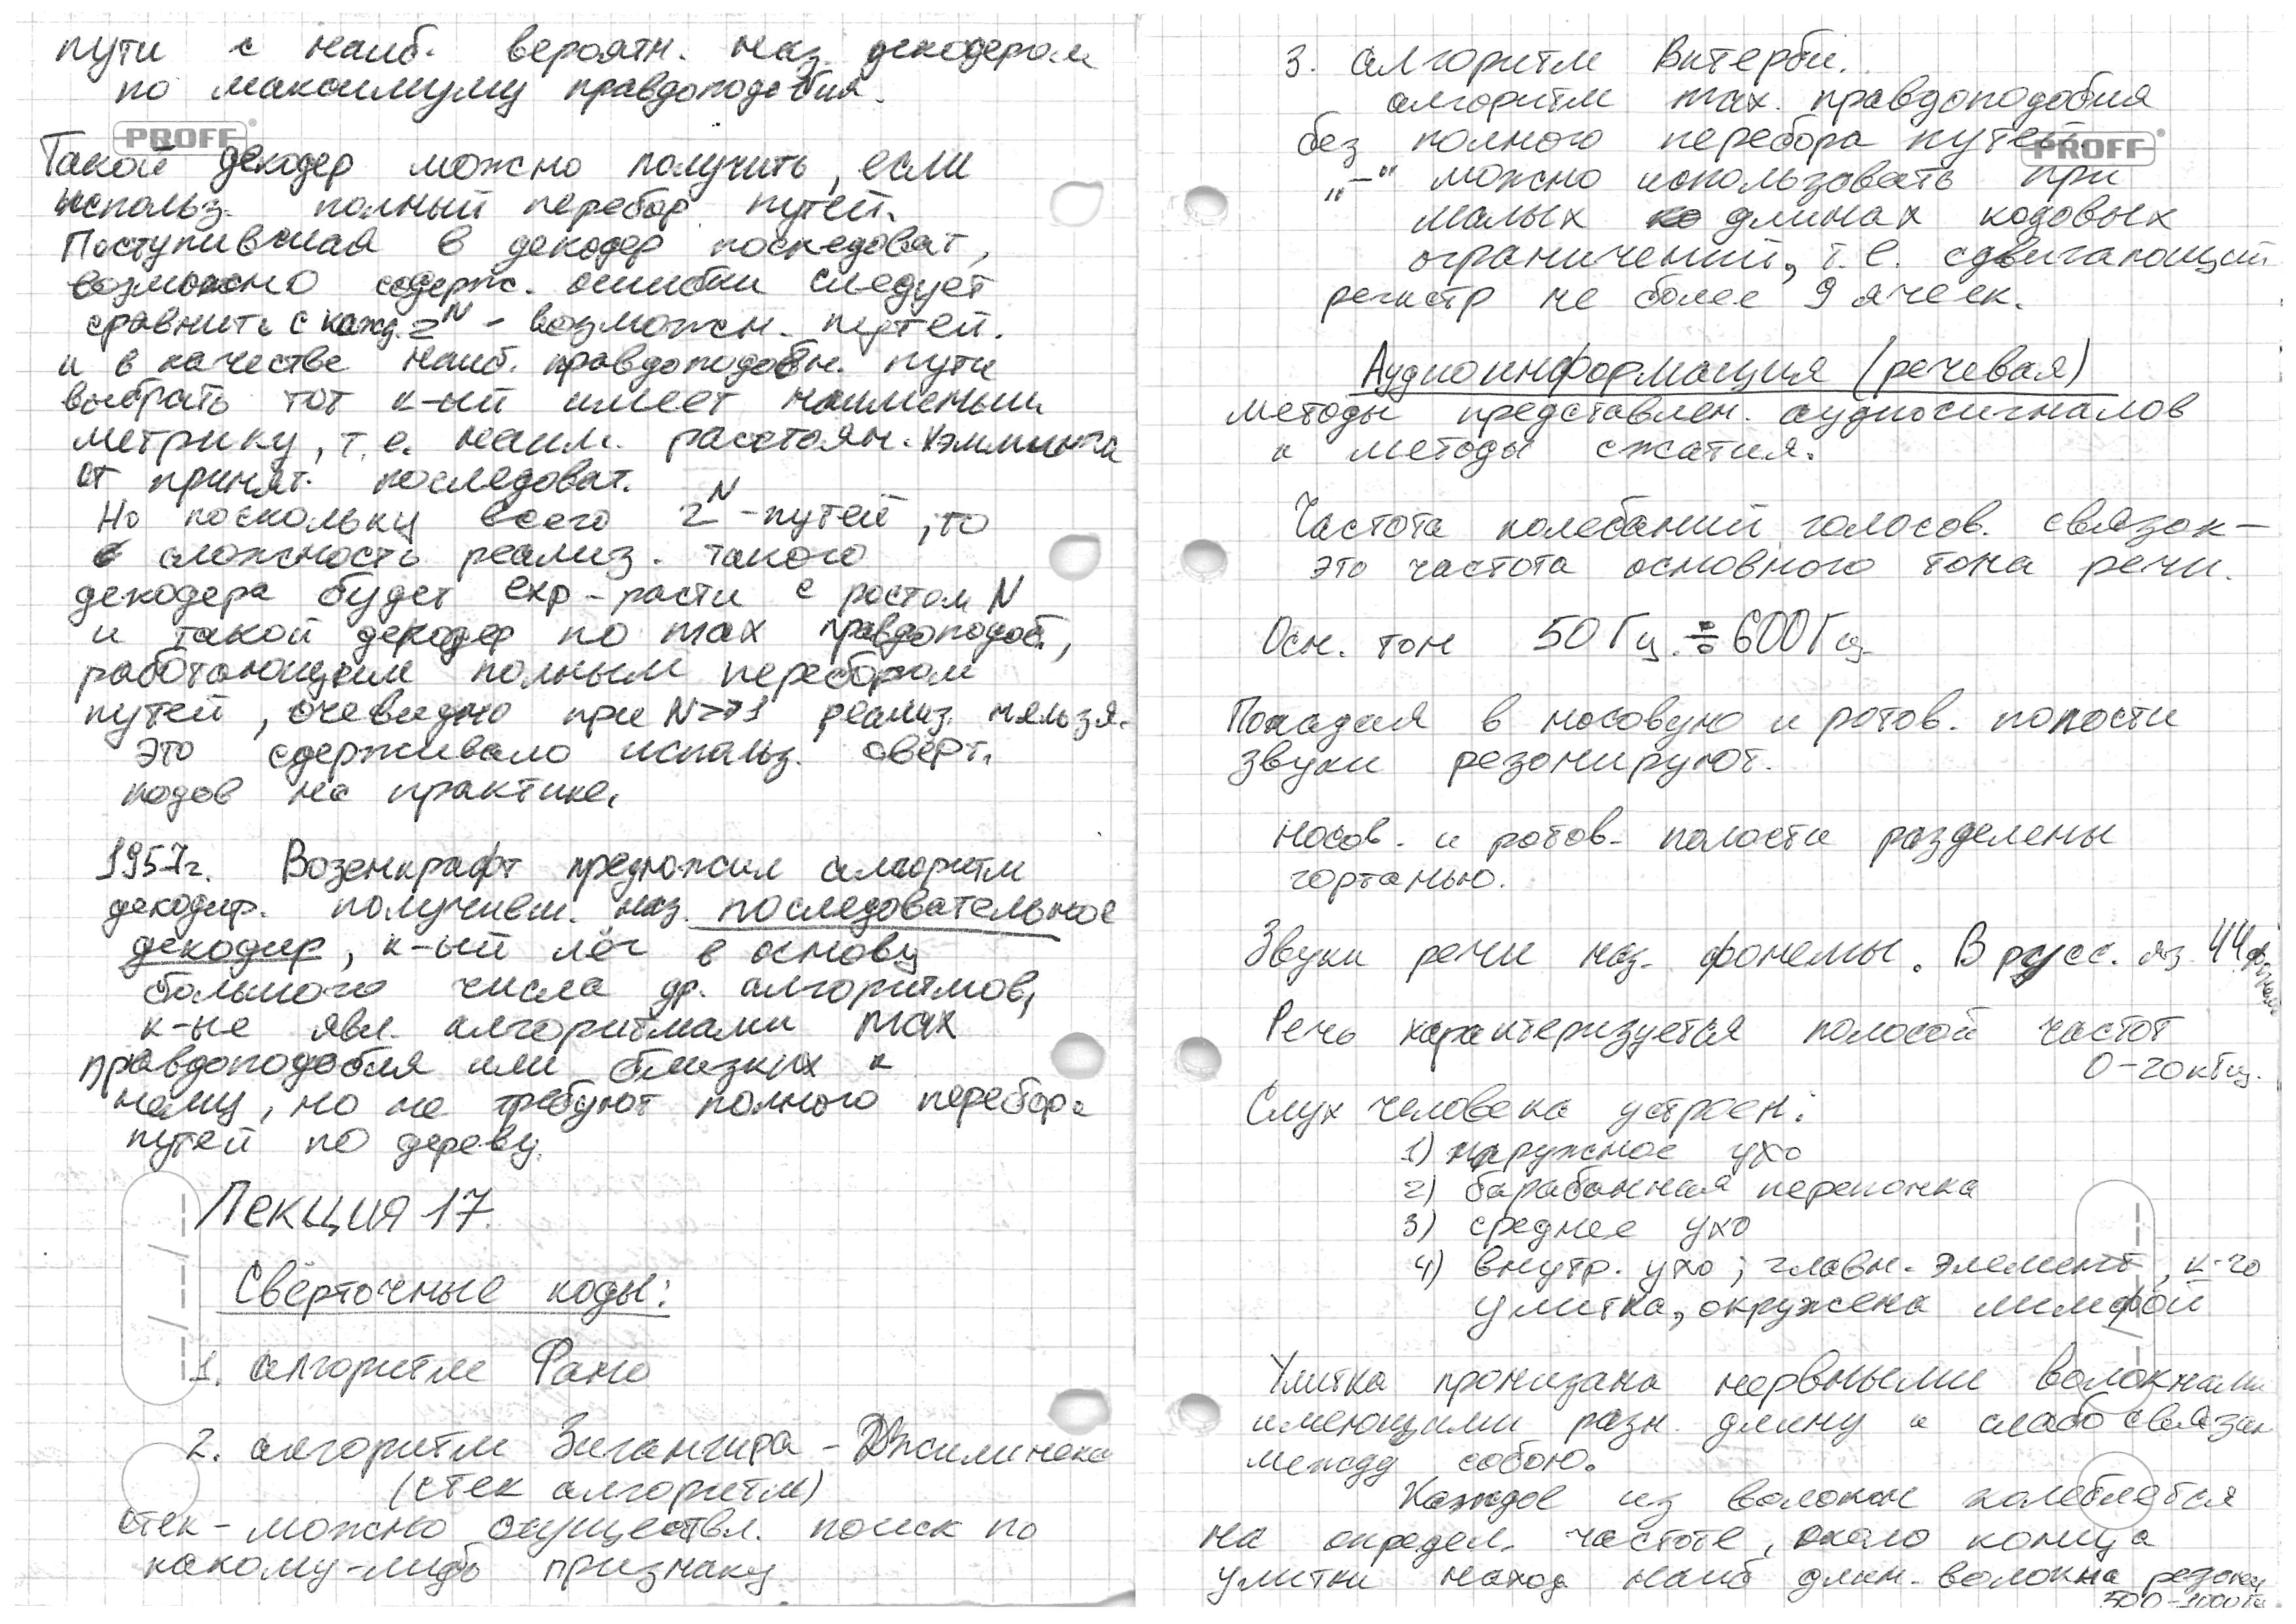 пути с наиб. вероятн. наз. декодером
по максимуму правдоподобия.
PROFF
Такой декодер можно получить, если
использ. полный перебор путей.
Поступившая в декодер последоват,
возможно содерж. ошибки следует
сравнить с кажд. 2^N - возможн. путей.
и в качестве наиб. правдоподобн. пути
выбрать тот к-ый имеет наименьш
метрику, т.е. наим. расстоян. Хэмминга
от принят. последоват.
Но поскольку всего 2^N -путей, то
сложность реализ. такого
декодера будет exp-расти с ростом N
и такой декодер по max правдоподоб.,
работающим полным перебором
путей, очевидно при N>>1 реализ. нельзя.
Это сдерживало использ. свёрт.
кодов на практике.
1957г. Возенкрафт предложил алгоритм
декодир. получивш. наз. последовательное
декодир, к-ый лёг в основу
большого числа др. алгоритмов,
к-ые явл. алгоритмами max
правдоподобия или близких к
нему, но не требуют полного перебора
путей по дереву.
Лекция 17.
Свёрточные коды:
1. алгоритм Фано
2. алгоритм Зигангира - Джилинека
(стек алгоритм)
стек - можно осуществл. поиск по
какому-либо признаку
3. алгоритм Витерби.
алгоритм max. правдоподобия
без полного перебора путей.
PROFF
„—“ можно использовать при
малых длинах кодовых
ограничений, т.е. сдвигающий
регистр не более 9 ячеек.
Аудиоинформация (речевая)
Методы представлен. аудиосигналов
и методы сжатия.
Частота колебаний голосов. связок —
это частота основного тона речи.
Осн. тон 50 Гц. ÷ 600 Гц.
Попадая в носовую и ротов. полости
звуки резонируют.
Носов. и ротов. полости разделены
гортанью.
Звуки речи наз. фонемы. В русс. яз. 44 фонемы
Речь характеризуется полосой частот
0-20кГц.
Слух человека устроен:
1) наружное ухо
2) барабанная перепонка
3) среднее ухо
4) внутр. ухо; главн. элемент, к-го
улитка, окружена лимфой
Улитка пронизана нервными волокнами
имеющими разн. длину и слабо связан
между собою.
Каждое из волокон колеблется
на определ. частоте, около конца
улитки наход наиб длин. волокна резонир
500-1000Гц